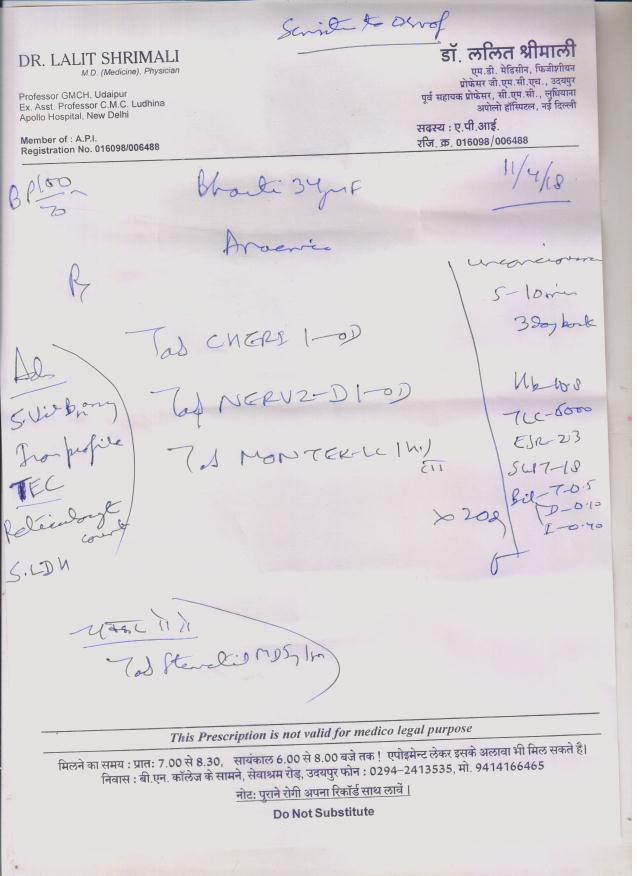 to
DR. LALIT SHRIMALI
M.D. (Medicine), Physician
Professor GMCH, Udaipur
Ex. Asst. Professor C.M.C. Ludhina
Apollo Hospital, New Delhi
Member of : A.P.I.
Registration No. 016098/006488
डॉ. ललित श्रीमाली
एम.डी. मेडिसीन, फिजीशीयन
प्रोफेसर जी.एम.सी.एच., उदयपुर
पूर्व सहायक प्रोफेसर, सी.एम.सी., लुधियाना
अपोलो हॉस्पिटल, नई दिल्ली
सदस्य : ए.पी.आई.
रजि. क्र. 016098/006488
BP 100
70
34yr F
11/4/18
Rx
5-10 min
3 day back
Tab CHERI 1-OD
Tab NERVZ-D 1-OD
Tab MONTER-LC 1
x 20d
Adv
Iron profile
TEC
Reticulocyte count
S.LDH
Hb-10.8
TLC-6000
ESR-23
SGPT-18
Bil-T-0.5
D-0.10
I-0.40
Tab Stemetil MD
This Prescription is not valid for medico legal purpose
मिलने का समय : प्रातः 7.00 से 8.30, सायंकाल 6.00 से 8.00 बजे तक ! एपोइमेन्ट लेकर इसके अलावा भी मिल सकते है।
निवास : बी.एन. कॉलेज के सामने, सेवाश्रम रोड़, उदयपुर फोन : 0294-2413535, मो. 9414166465
नोटः पुराने रोगी अपना रिकॉर्ड साथ लावें।
Do Not Substitute